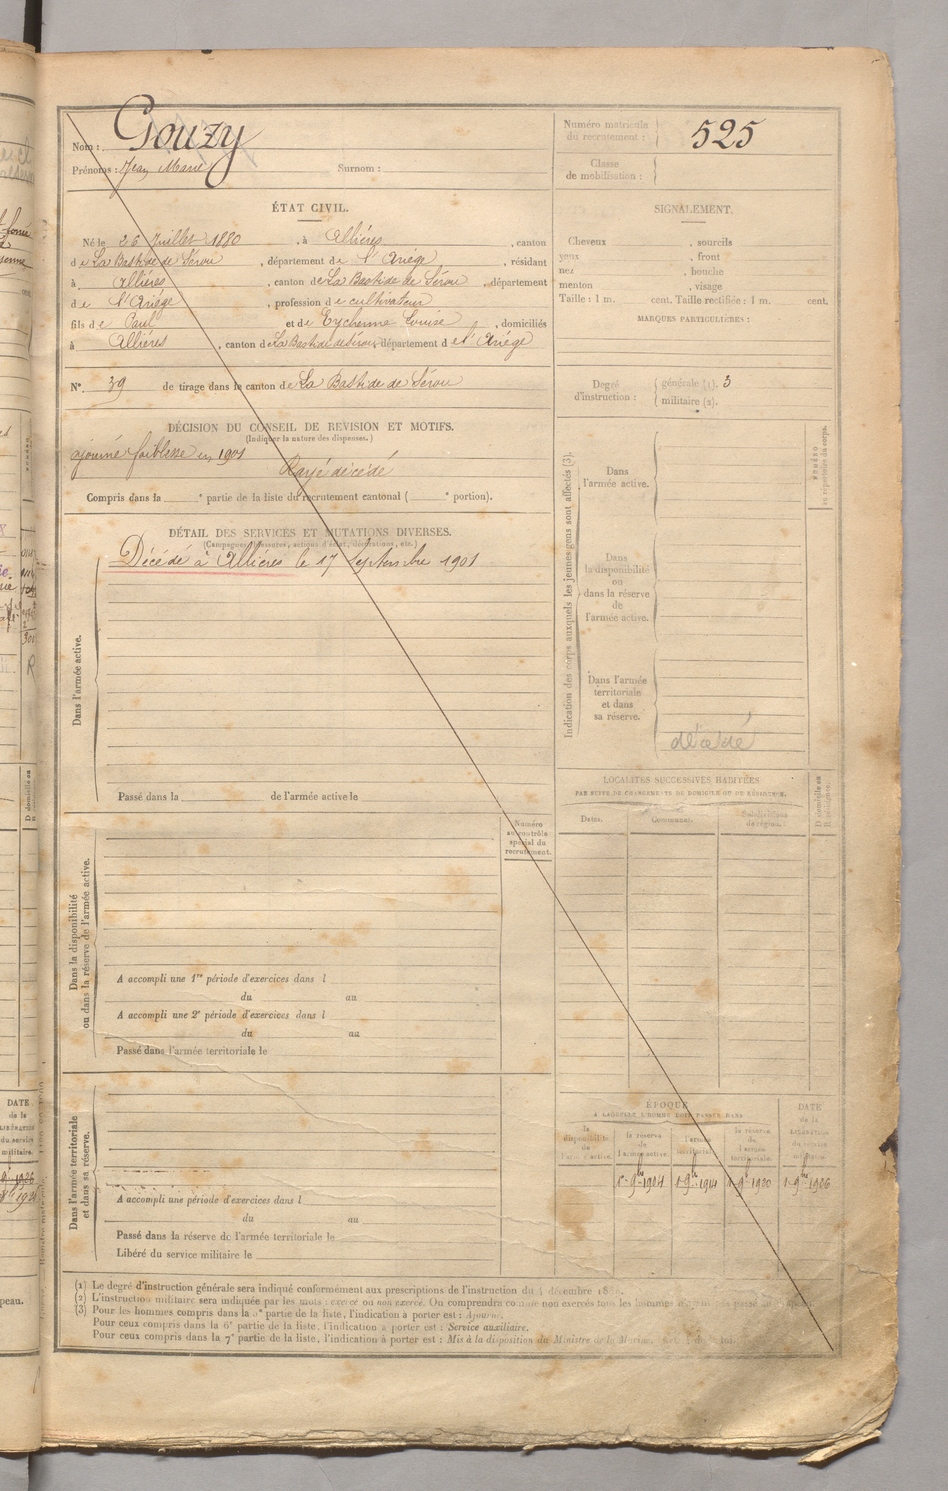 Nom : Gouzy
Prénoms : Jean Marie Surnom :
Numéro matricule du recrutement : 525
Classe de mobilisation :
ÉTAT CIVIL.
Né le 26 Juillet 1880, à Allières, canton
de La Bastide de Sérou, département de l'Ariège, résidant
à Allières, canton de La Bastide de Sérou, département
de l'Ariège, profession de cultivateur
fils de Paul et de Eychenne Louise, domiciliés
à Allières, canton de La Bastide de Sérou, département de l'Ariège
N°. 39 de tirage dans le canton de La Bastide de Sérou
DÉCISION DU CONSEIL DE REVISION ET MOTIFS.
(Indiquer la nature des dispenses.)
ajourné faiblesse en 1901
Rayé décédé
Compris dans la e partie de la liste du recrutement cantonal ( e portion).
DÉTAIL DES SERVICES ET MUTATIONS DIVERSES.
(Campagnes, blessures, actions d'éclat, décorations, etc.)
Décédé à Allières le 17 Septembre 1901
Dans l'armée active.
Passé dans la de l'armée active le
Numéro
au contrôle
spécial du
recrutement.
Dans la disponibilité
ou dans la réserve de l'armée active.
A accompli une 1re période d'exercices dans l
du au
A accompli une 2e période d'exercices dans l
du au
Passé dans l'armée territoriale le
Dans l'armée territoriale
et dans sa réserve.
A accompli une période d'exercices dans l
du au
Passé dans la réserve de l'armée territoriale le
Libéré du service militaire le
SIGNALEMENT.
Cheveux , sourcils
yeux , front
nez , bouche
menton , visage
Taille : 1 m. cent. Taille rectifiée : 1 m. cent.
MARQUES PARTICULIÈRES :
Degré d'instruction : générale (1). 3
militaire (2).
Indication des corps auxquels les jeunes gens sont affectés (3).
Dans
l'armée active.
Dans
la disponibilité
ou
dans la réserve
de
l'armée active.
Dans l'armée
territoriale
et dans
sa réserve.
décédé
NUMÉRO
au répertoire du corps.
LOCALITÉS SUCCESSIVES HABITÉES
PAR SUITE DE CHANGEMENTS DE DOMICILE OU DE RÉSIDENCE.
Dates. Communes. Subdivisions de région.
D domicile ou
R résidence.
ÉPOQUE
À LAQUELLE L'HOMME DOIT PASSER DANS
DATE
de la
LIBÉRATION
du service
militaire.
la disponibilité de l'armée active.
la réserve de l'armée active.
l'armée territoriale.
la réserve de l'armée territoriale.
1er 9bre 1904 1 9bre 1911 1 9bre 1920 1 9bre 1926
(1) Le degré d'instruction générale sera indiqué conformément aux prescriptions de l'instruction du 4 décembre
(2) L'instruction militaire sera indiquée par les mots : exercé ou non exercé. On comprendra comme non exercés tous les hommes
(3) Pour les hommes compris dans la 5e partie de la liste, l'indication à porter est : Ajourné.
Pour ceux compris dans la 6e partie de la liste, l'indication à porter est : Service auxiliaire.
Pour ceux compris dans la 7e partie de la liste, l'indication à porter est : Mis à la disposition du Ministre de la Marine.
DATE
de la
LIBÉRATION
du service
militaire.